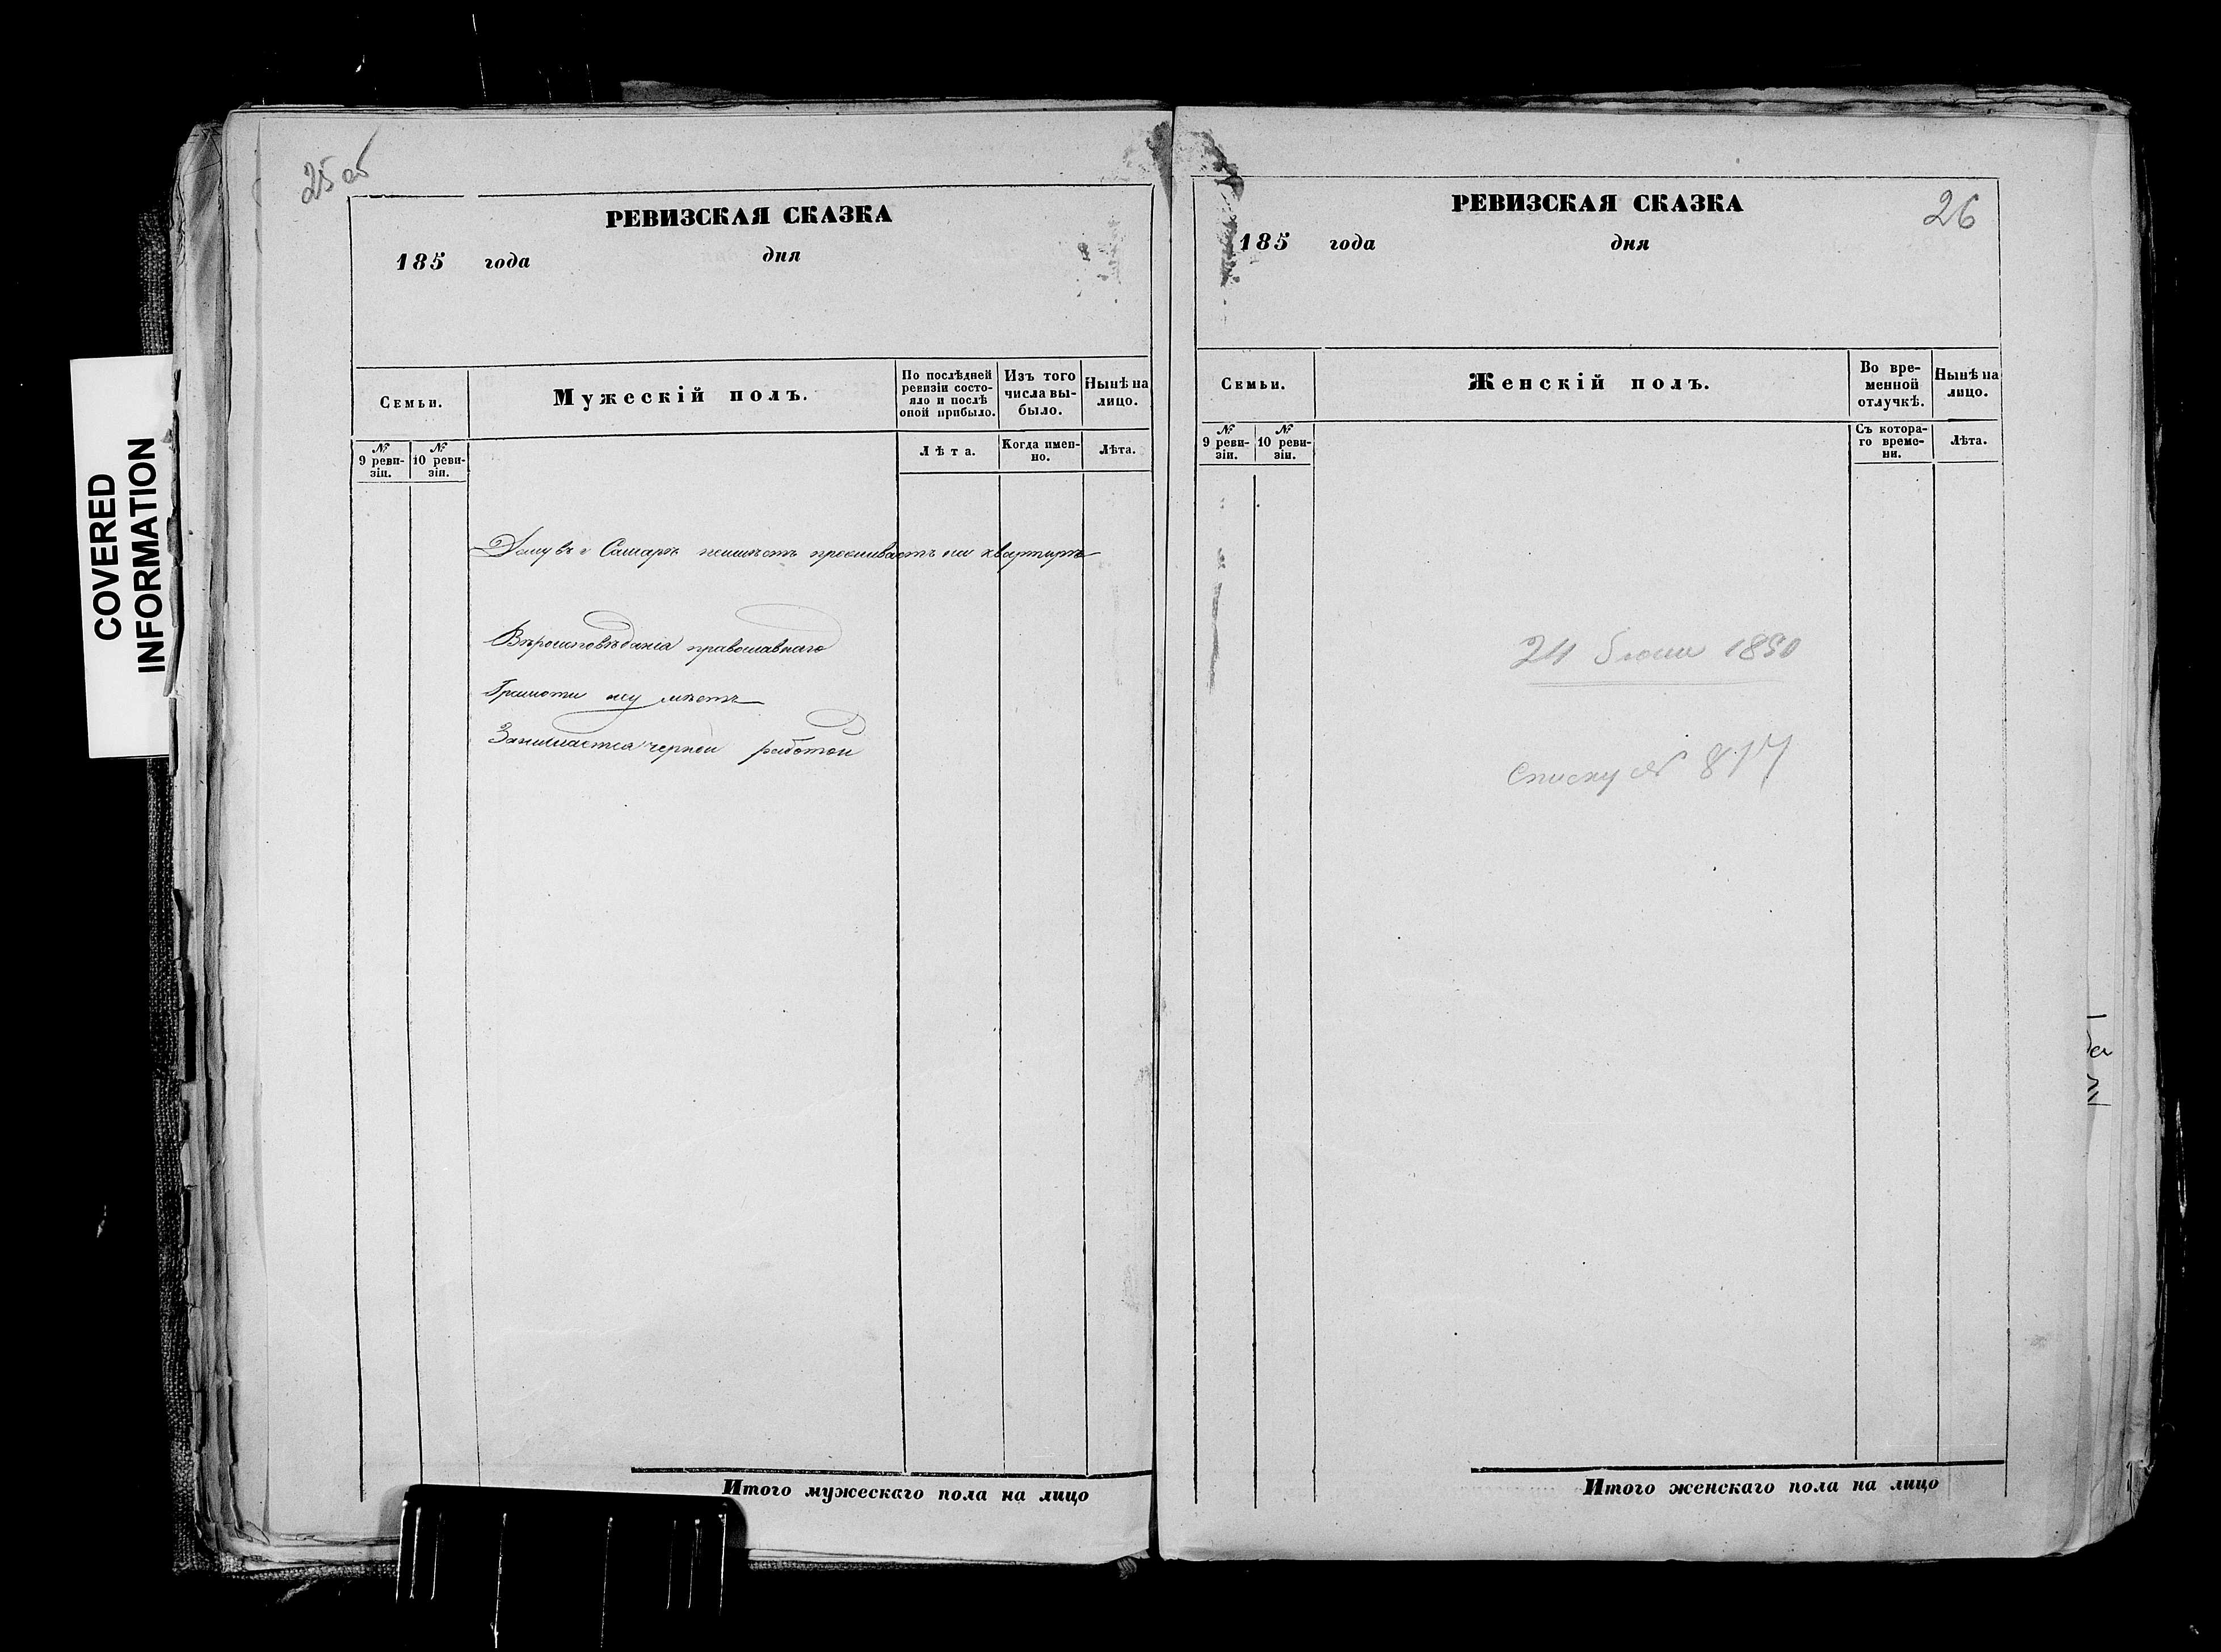 COVERED
INFORMATION
25 об
РЕВИЗСКАЯ СКАЗКА
185 года дня
Семьи.
Мужескій полъ.
По послѣдней ревизіи состо-
яло и послѣ
оной прибыло.
Изъ того
числа вы-
было.
Нынѣ на
лицо.
№
9 реви-
зіи.
№
10 реви-
зіи.
Лѣта.
Когда имен-
но.
Лѣта.
Дому въ г Самарѣ неимѣетъ проживаетъ на квартирѣ
Вѣроисповѣданіа православнаго
Грамоти неумѣетъ
Занимается черной работой
Итого мужескаго пола на лицо
26
РЕВИЗСКАЯ СКАЗКА
185 года дня
Семьи.
Женскій полъ.
Во вре-
менной
отлучкѣ.
Нынѣ на
лицо.
№
9 реви-
зіи.
№
10 реви-
зіи.
Съ котора-
го време-
ни.
Лѣта.
24 1890
списку № 817
Итого женскаго пола на лицо